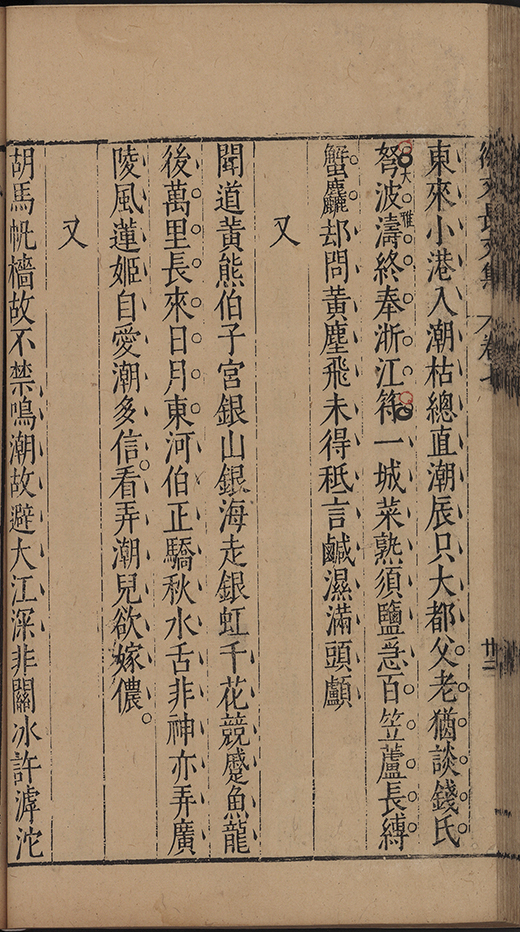 徐文長文集 卷七
廿二
東來小港入潮枯總直潮辰只大都父老猶談錢氏
弩波濤終奉浙江符一城菜熟須鹽急百笠蘆長縛
大雅
蟹麤却問黃塵飛未得秪言鹹濕滿頭顱
又
聞道黃熊伯子宮銀山銀海走銀虹千花競蹙魚龍
後萬里長來日月東河伯正驕秋水舌非神亦弄廣
陵風蓮姬自愛潮多信看弄潮兒欲嫁儂
又
胡馬帆檣故不禁鳴潮故避大江深非關冰許滹沱